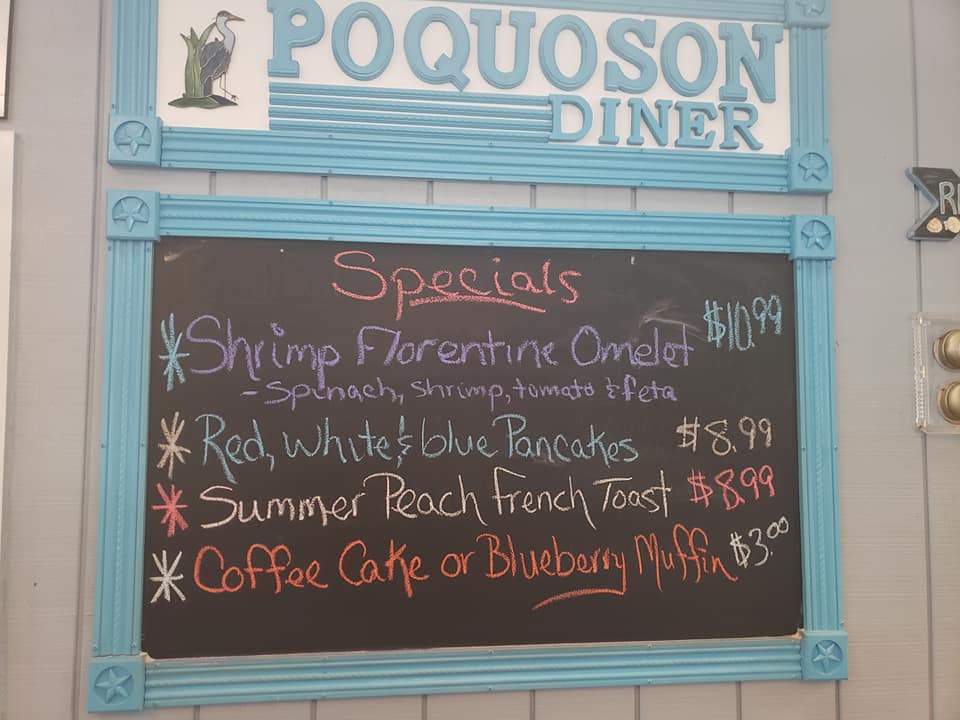 POQUOSON
DINER
Specials
*Shrimp Florentine Omelet $10.99
-Spinach, shrimp, tomato & feta
*Red, white & blue Pancakes $8.99
*Summer Peach French Toast $8.99
*Coffee Cake or Blueberry Muffin $3.00